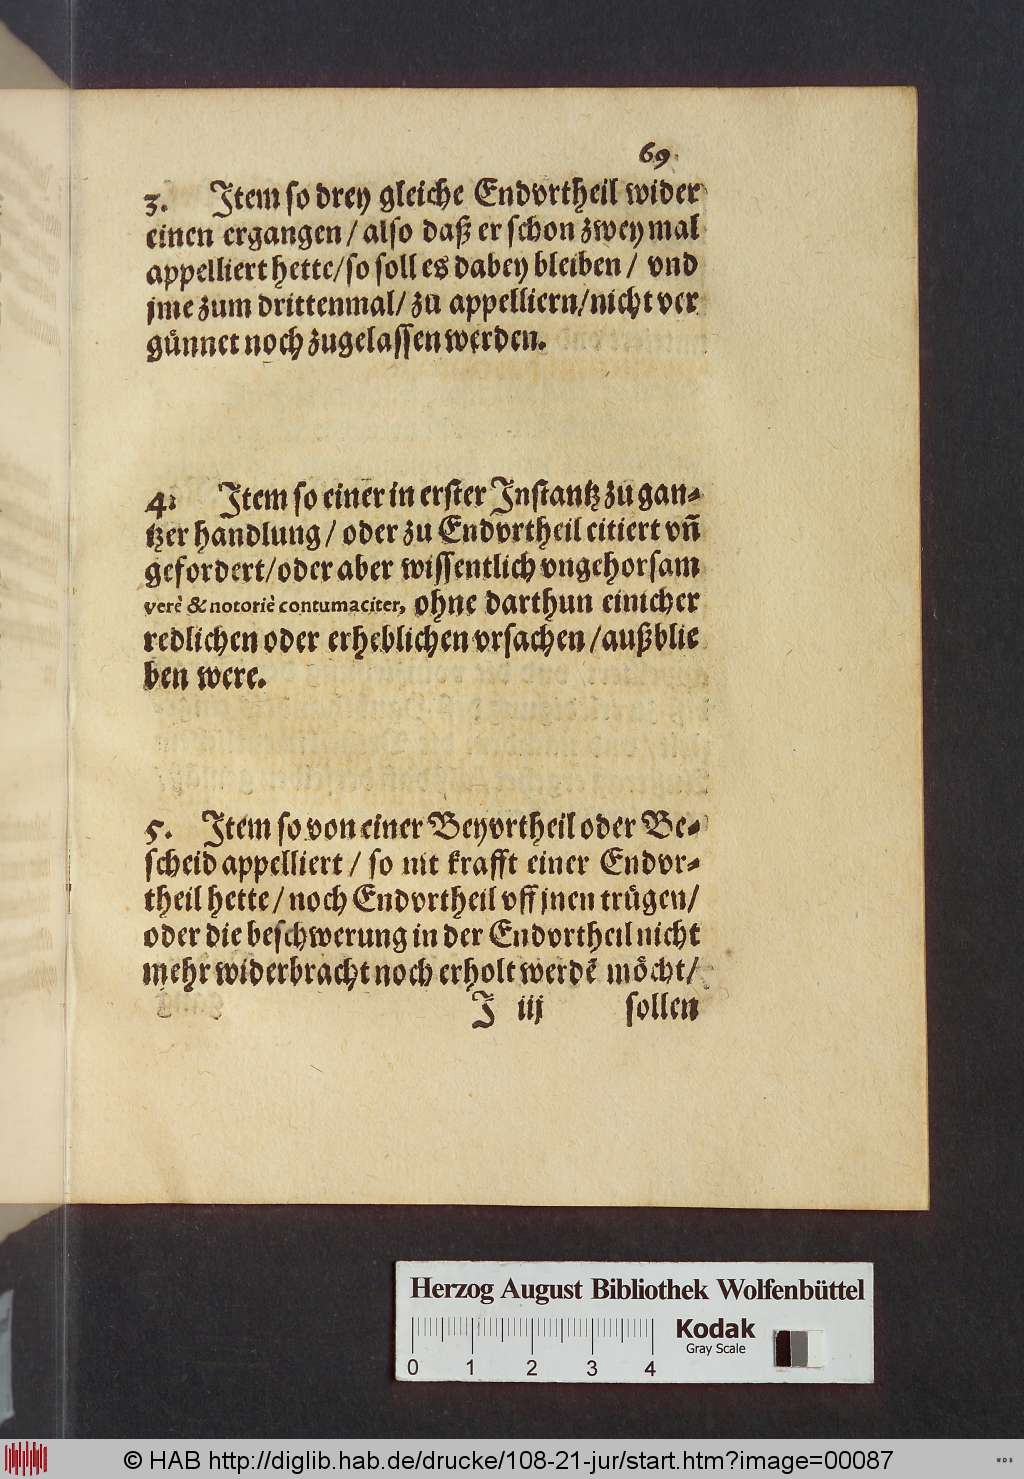 69.
3. Item so drey gleiche Endvrtheil wider
einen ergangen / also daß er schon zwey mal
appelliert hette/so soll es dabey bleiben / vnd
jme zum drittenmal/ zu appelliern/nicht ver
günnet noch zugelassen werden.
4. Item so einer in erster Instantz zu gan-
tzer handlung / oder zu Endvrtheil citiert vñ
gefordert/oder aber wissentlich vngehorsam
verè & notoriè contumaciter, ohne darthun einicher
redlichen oder erheblichen vrsachen /außblie
ben were.
5. Item so von einer Beyvrtheil oder Be-
scheid appelliert / so nit krafft einer Endvr-
theil hette / noch Endvrtheil vff jnen trügen/
oder die beschwerung in der Endvrtheil nicht
mehr widerbracht noch erholt werdẽ möcht/
J iij sollen
Herzog August Bibliothek Wolfenbüttel
Kodak
Gray Scale
0 1 2 3 4
© HAB http://diglib.hab.de/drucke/108-21-jur/start.htm?image=00087